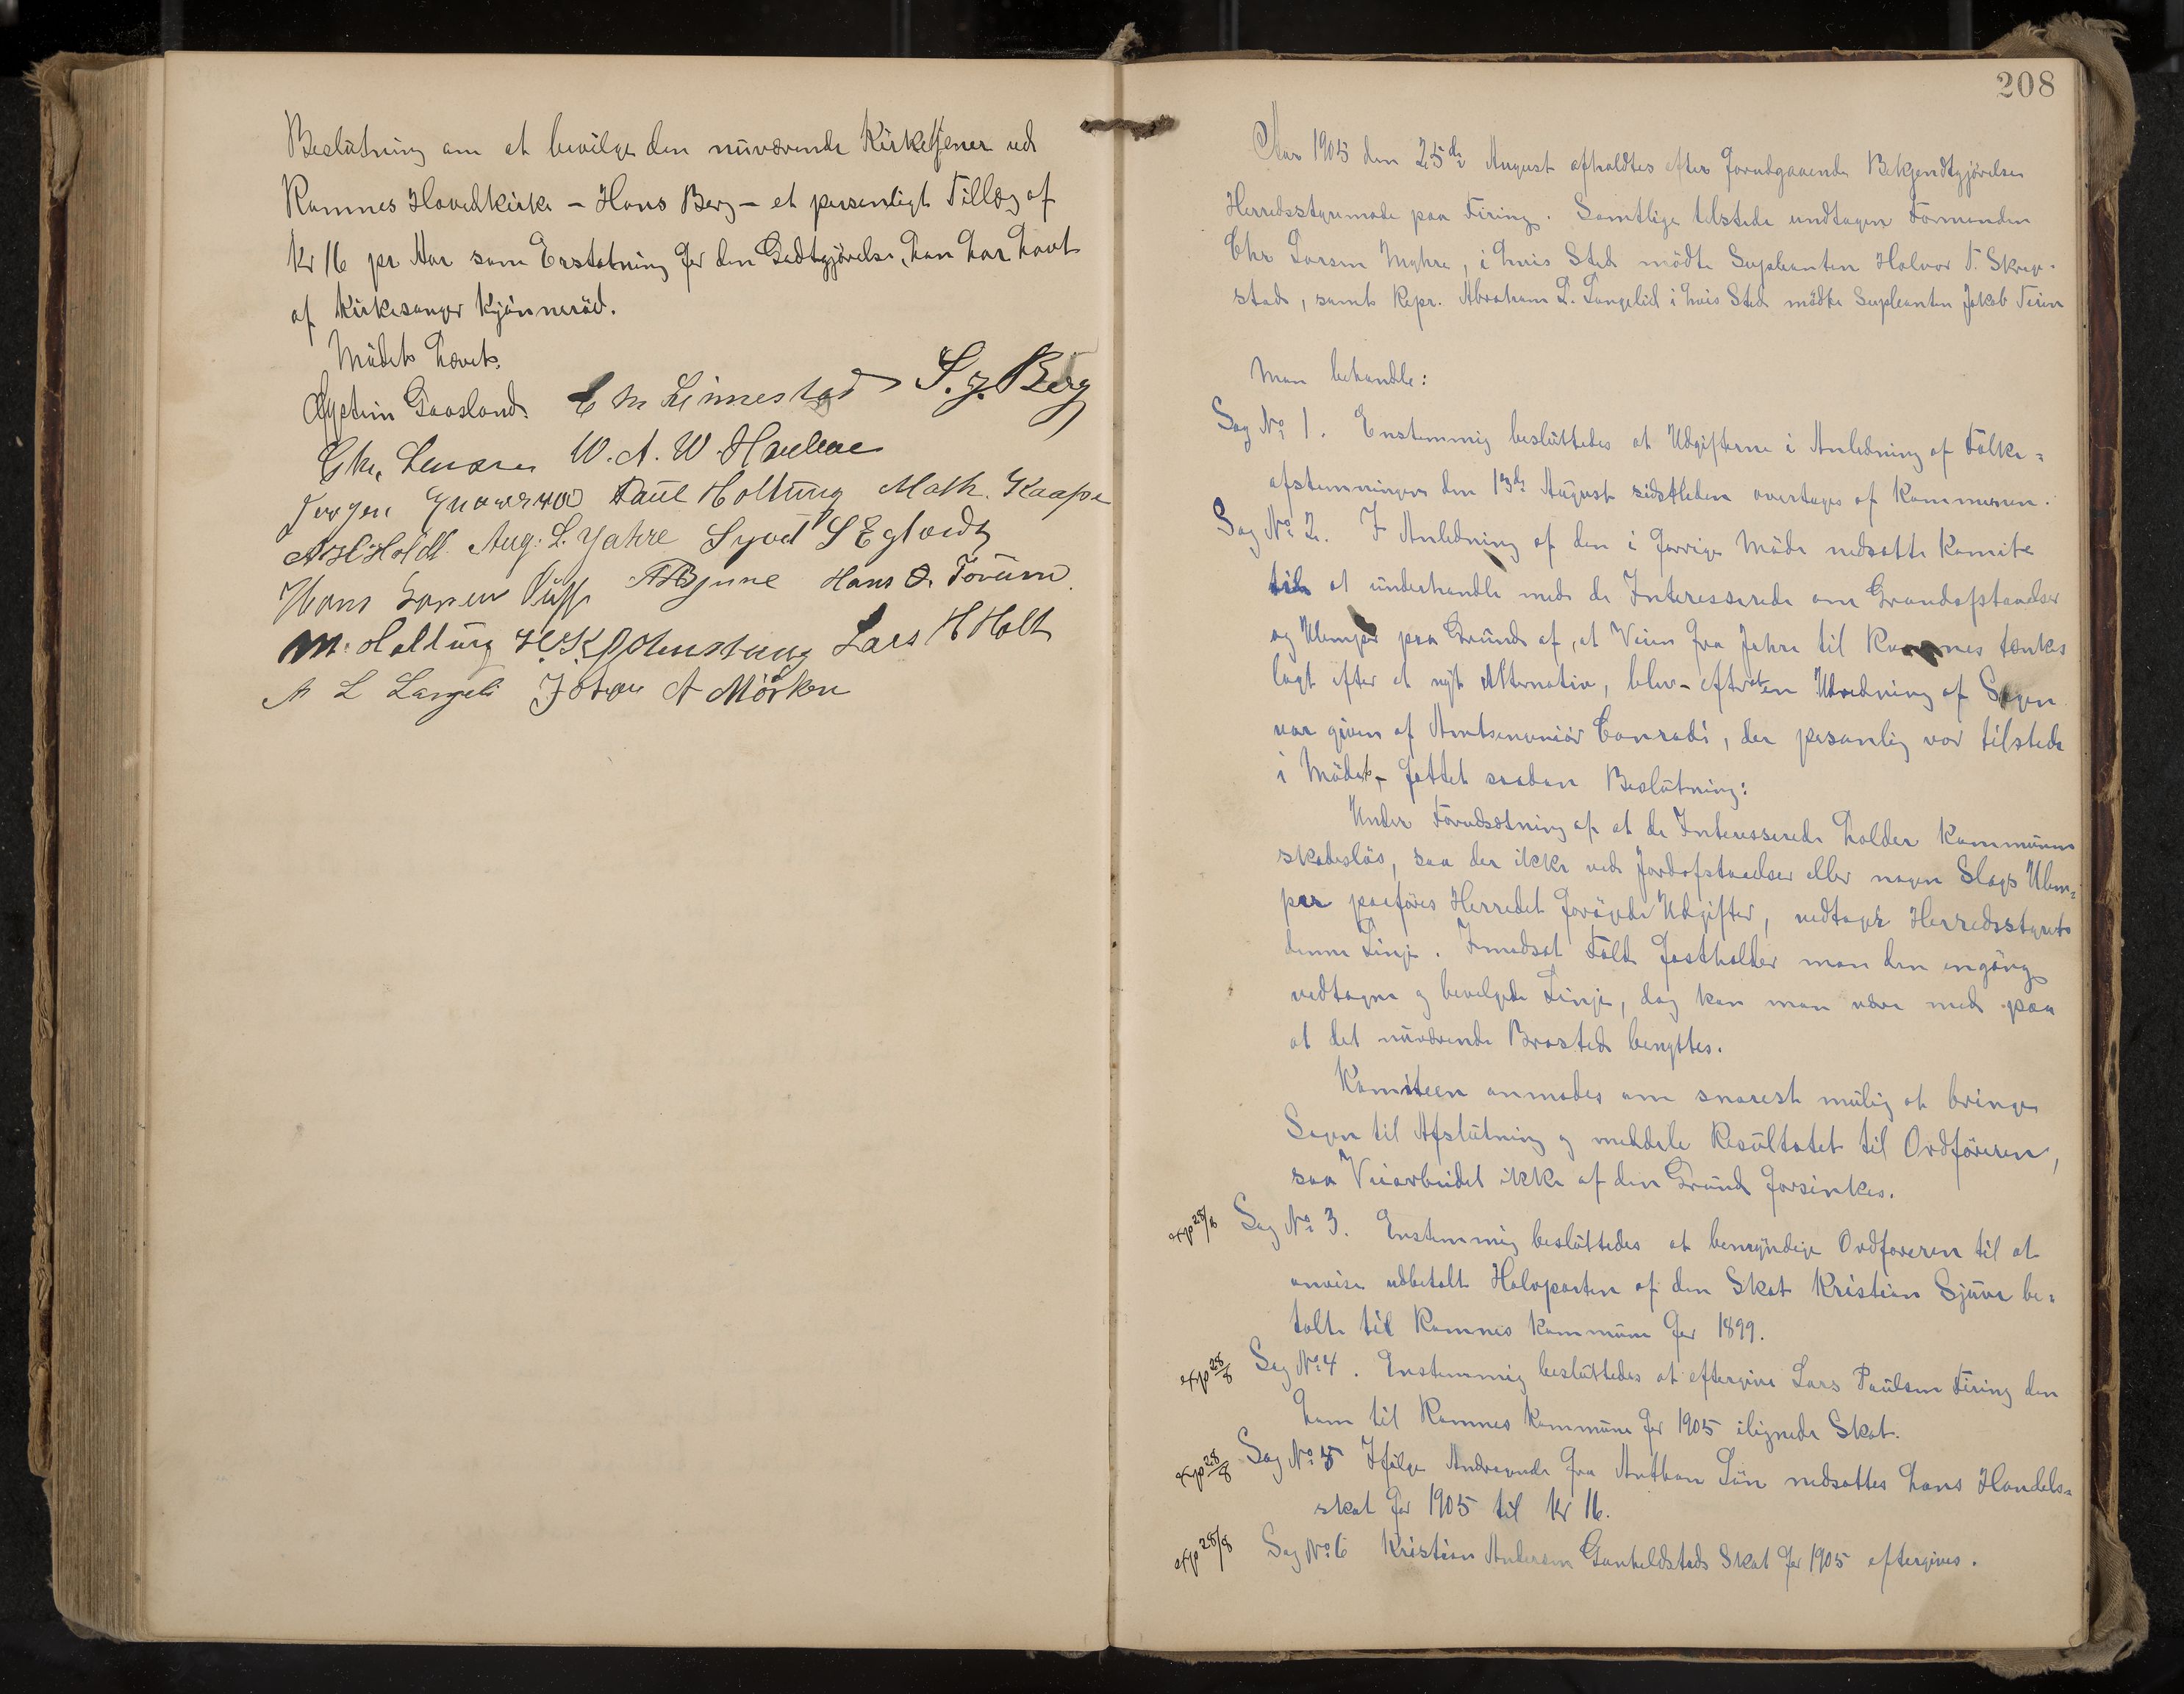 Beslutning om at bevilge den nuværende Kirketjener ved
Ramnes Hovedkirke – Hans Berg – et personligt Tillæg af
Kr 16 pr Aar som Erstatning for den Godtgjörelse, han har havt
af Kirkesanger Kjönneröd.
Mödet hævet.
Öystein Gaasland. E M Linnestad S. J. Berg
Chr. Larsen W. A. W.
Jörgen Paul Holtung Math. Kaape
A H Holdt. Aug: L. Jahre Syver S
Hans Larsen A Bjune Hans O. Forum.
M. Holtung H. K. Lars H Holt
A L Langeli Johan A Mörken
208
Aar 1905 den 25de August afholdtes efter forudgaaende Bekjendtgjörelse
Herredsstyremöde paa Firing. Samtlige tilstede undtagen Formanden
Chr Larsen Myhre, i hvis Sted mödte Supleanten Halvor T. Skrep-
stad, samt Repr. Abraham L. Langelid i hvis Sted mödte Supleanten Jakob Firin
Man behandle:
Sag No 1. Enstemmig besluttedes at Udgifterne i Anledning af Folke=
afstemningen den 13de August sidstleden overtages af Kommunen.
Sag No 2. I Anledning af den i forrige Möde nedsatte Komite
til at underhandle med de Interesserede om Grundafstaaelser
og Ulemper paa Grund af, at Veien fra Jahre til Ramnes tænkes
lagt efter et nyt Alternativ, blev – efterat en Udredning af Sagen
var given af Amtsingeniör Conradi, der personlig var tilstede
i Mödet, – fattet saadan Beslutning:
Under Forudsætning af at de Interesserede holder Kommunen
skadeslös, saa der ikke ved Jordafstaaelser eller nogen Slags Ulem=
per paaföres Herredet forögede Udgifter, vedtager Herredsstyret
denne Linje. Imodsat Fald fastholder man den engang
vedtagne og bevilgede Linje, dog kan man være med paa
at det nuværende Brosted benyttes.
Komiteen anmodes om snarest mulig at bringe
Sagen til Afslutning og meddele Resultatet til Ordföreren,
saa Veiarbeidet ikke af den Grund forsinkes.
exp 28/8 Sag No 3. Enstemmig besluttedes at bemyndige Ordföreren til at
anvise udbetalt Halvparten af den Skat Kristian Sjuve be=
talte til Ramnes Kommune for 1899.
exp 28/8 Sag No 4. Enstemmig besluttedes at eftergive Lars Paulsen Firing den
ham til Ramnes Kommune for 1905 ilignede Skat.
exp 28/8 Sag No 5 Ifölge Andragende fra Anthon Lön nedsattes hans Handels=
skat for 1905 til Kr 16.
exp 28/8 Sag No 6 Kristian Andersen Gunhildstads Skat for 1905 eftergives.